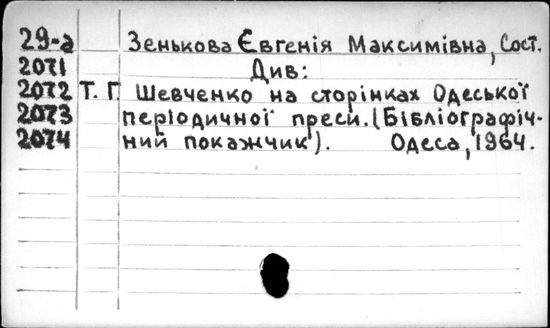 29-а Зенькова Євгенія Максимівна, Сост.
2071 Див:
2072 Т. Г. Шевченко на сторінках Одеської
2073 періодичної преси. (Бібліографіч-
2074 ний покажчик). Одеса, 1964.